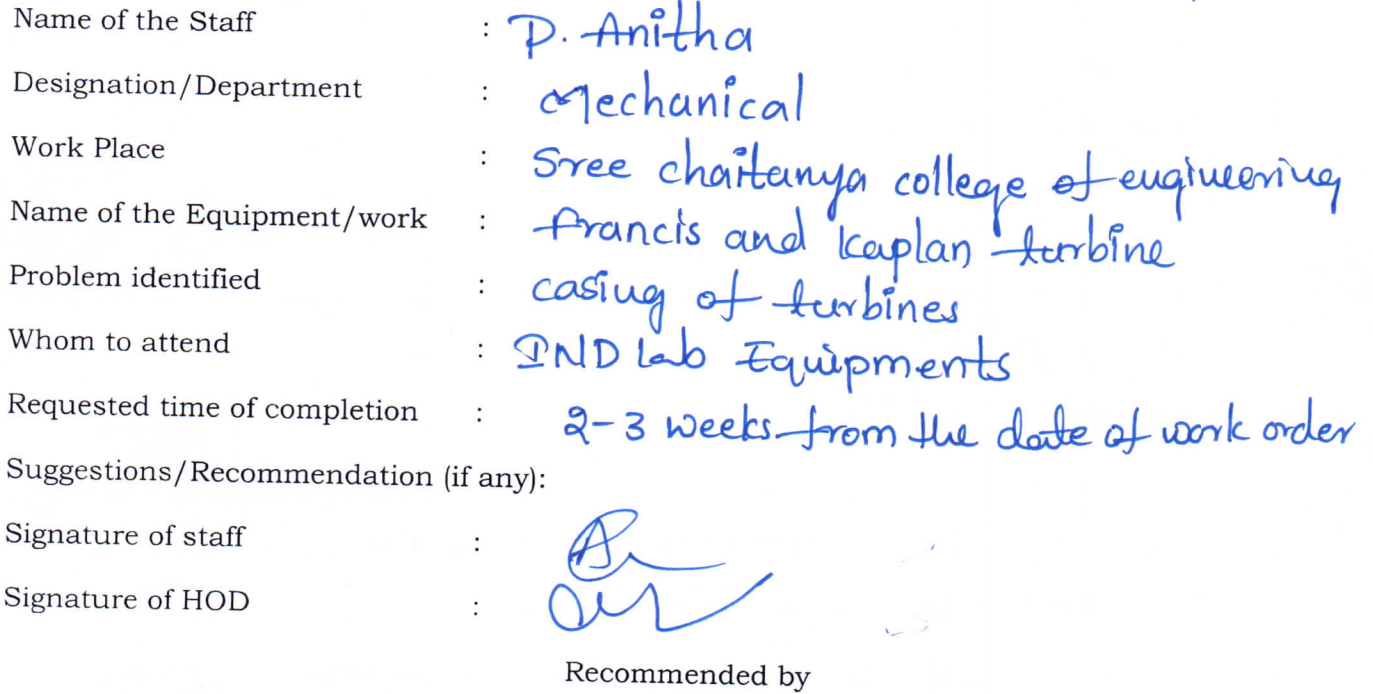 Name of the Staff : D. Anitha
Designation/Department : Mechanical
Work Place : Sree chaitanya college of engineering
Name of the Equipment/work : francis and kaplan turbine
Problem identified : casing of turbines
Whom to attend : IND Lab Equipments
Requested time of completion : 2-3 weeks from the date of work order
Suggestions/Recommendation (if any):
Signature of staff :
Signature of HOD :
Recommended by